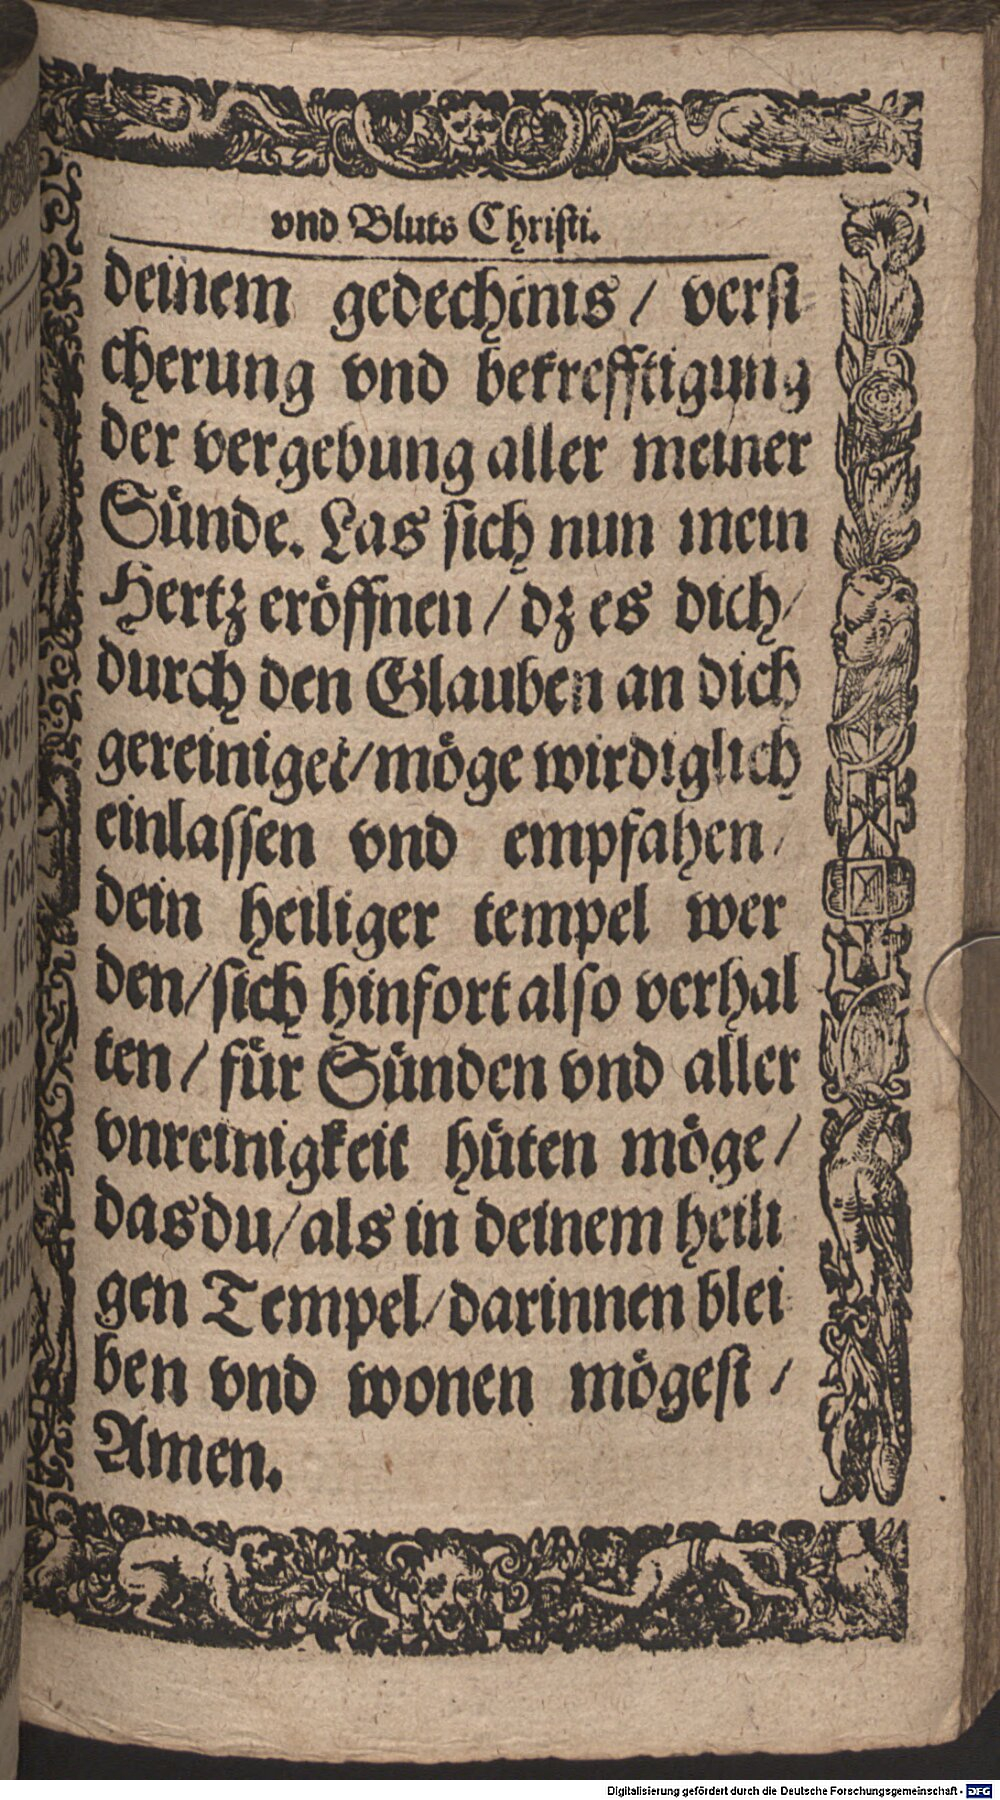 vnd Bluts Christi.
deinem gedechtnis / versi-
cherung vnd bekrefftigung
der vergebung aller meiner
Sünde. Las sich nun mein
Hertz eröffnen / dz es dich /
durch den Glauben an dich
gereiniget / möge wirdiglich
einlassen vnd empfahen /
dein heiliger tempel wer
den / sich hinfort also verhal
ten / für Sünden vnd aller
vnreinigkeit hüten möge /
das du / als in deinem heili
gen Tempel / darinnen blei
ben vnd wonen mögest /
Amen.
Digitalisierung gefördert durch die Deutsche Forschungsgemeinschaft - DFG